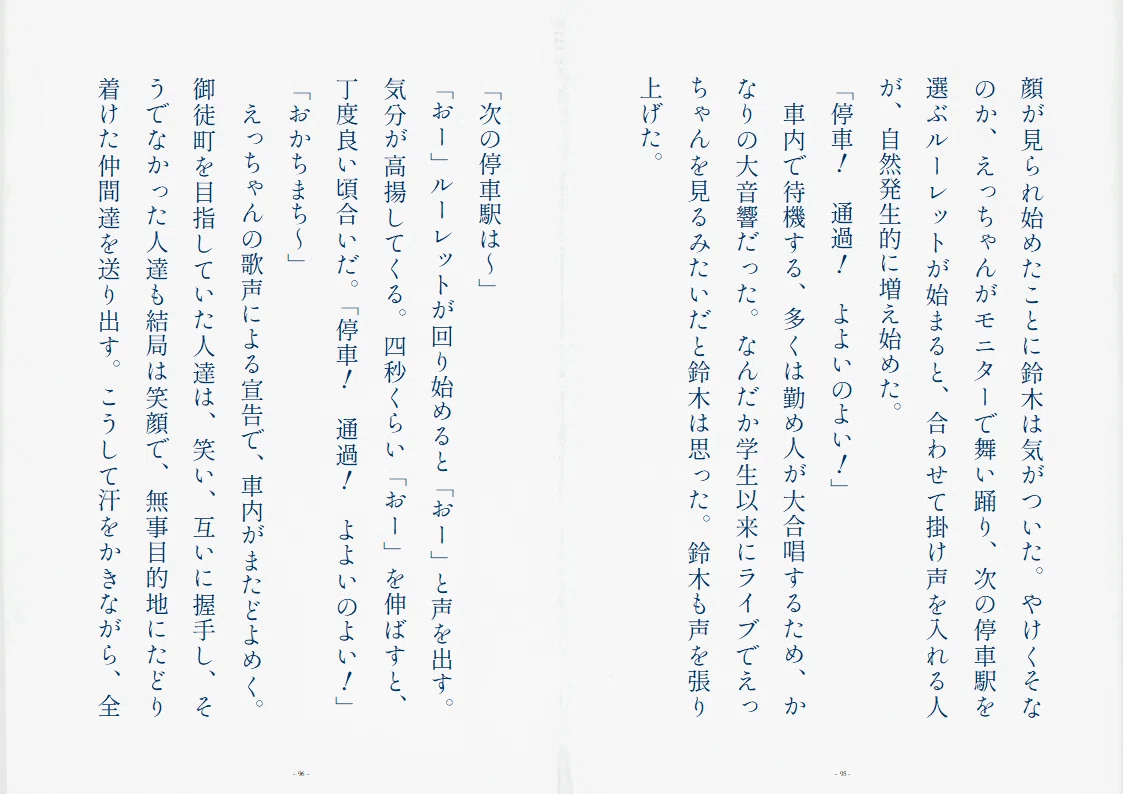 顔が見られ始めたことに鈴木は気がついた。やけくそな
のか、えっちゃんがモニターで舞い踊り、次の停車駅を
選ぶルーレットが始まると、合わせて掛け声を入れる人
が、自然発生的に増え始めた。
「停車！　通過！　よよいのよい！」
　車内で待機する、多くは勤め人が大合唱するため、か
なりの大音響だった。なんだか学生以来にライブでえっ
ちゃんを見るみたいだと鈴木は思った。鈴木も声を張り
上げた。
- 95 -
「次の停車駅は～」
「おー」ルーレットが回り始めると「おー」と声を出す。
気分が高揚してくる。四秒くらい「おー」を伸ばすと、
丁度良い頃合いだ。「停車！　通過！　よよいのよい！」
「おかちまち～」
　えっちゃんの歌声による宣告で、車内がまたどよめく。
御徒町を目指していた人達は、笑い、互いに握手し、そ
うでなかった人達も結局は笑顔で、無事目的地にたどり
着けた仲間達を送り出す。こうして汗をかきながら、全
- 96 -